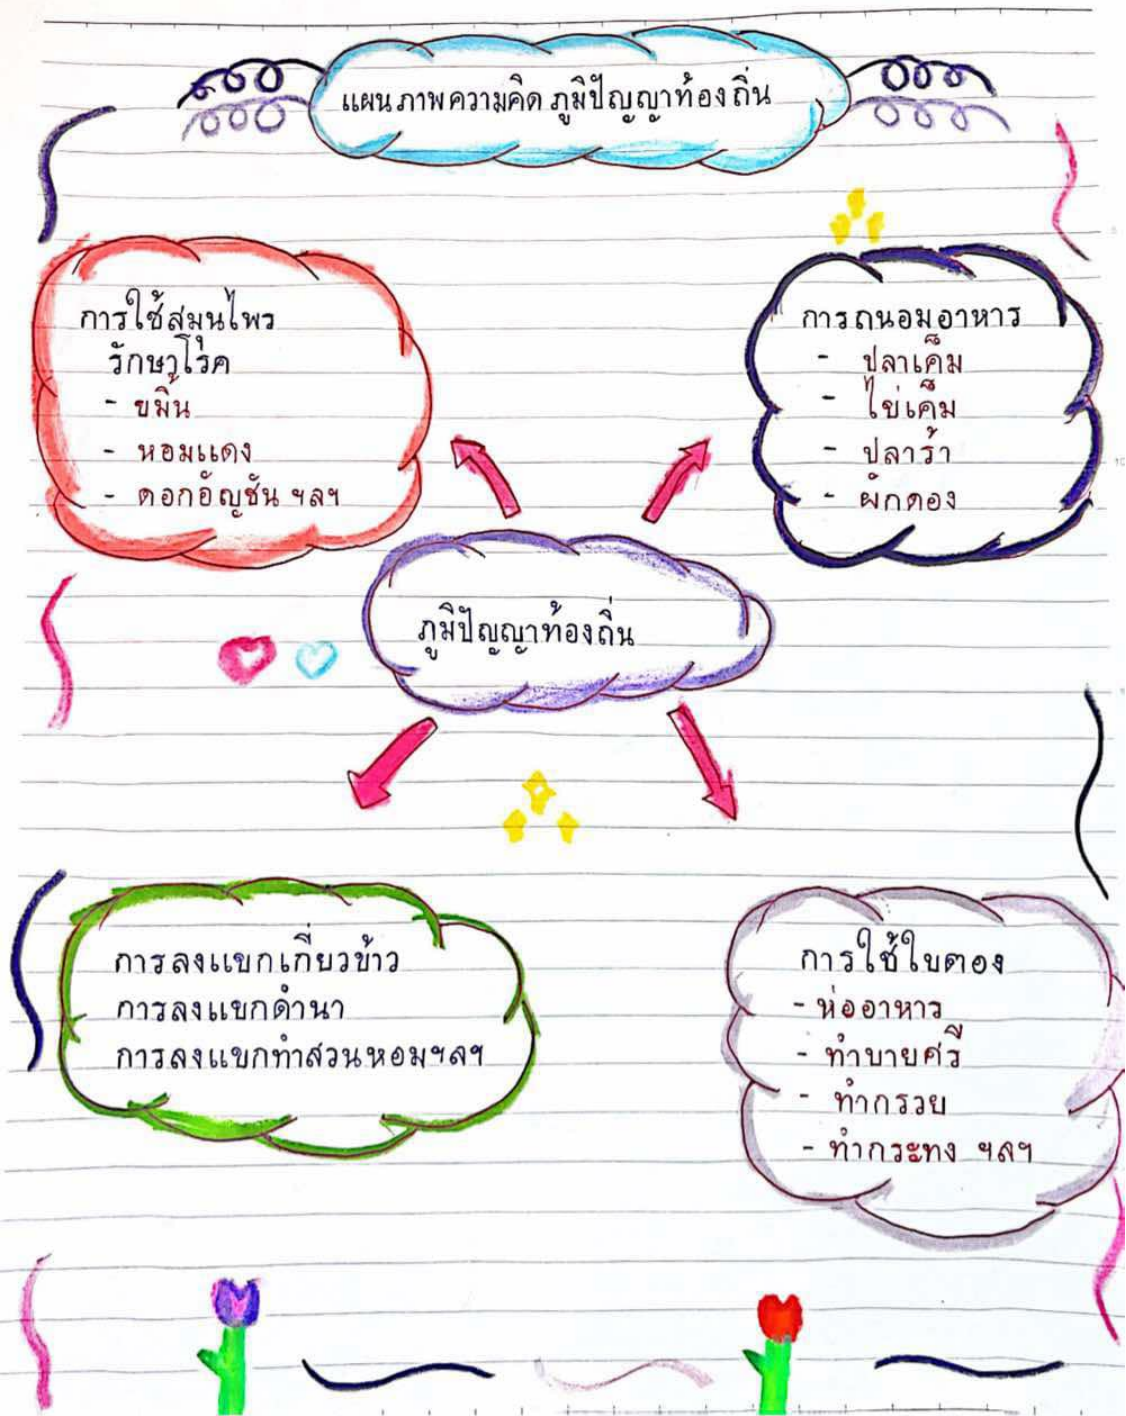 แผนภาพความคิด ภูมิปัญญาท้องถิ่น
การใช้สมุนไพร
รักษาโรค
- ขมิ้น
- หอมแดง
- ดอกอัญชัน ฯลฯ
การถนอมอาหาร
- ปลาเค็ม
- ไข่เค็ม
- ปลาร้า
- ผักดอง
ภูมิปัญญาท้องถิ่น
การลงแขกเกี่ยวข้าว
การลงแขกดำนา
การลงแขกทำสวนหอมฯลฯ
การใช้ใบตอง
- ห่ออาหาร
- ทำบายศรี
- ทำกรวย
- ทำกระทง ฯลฯ